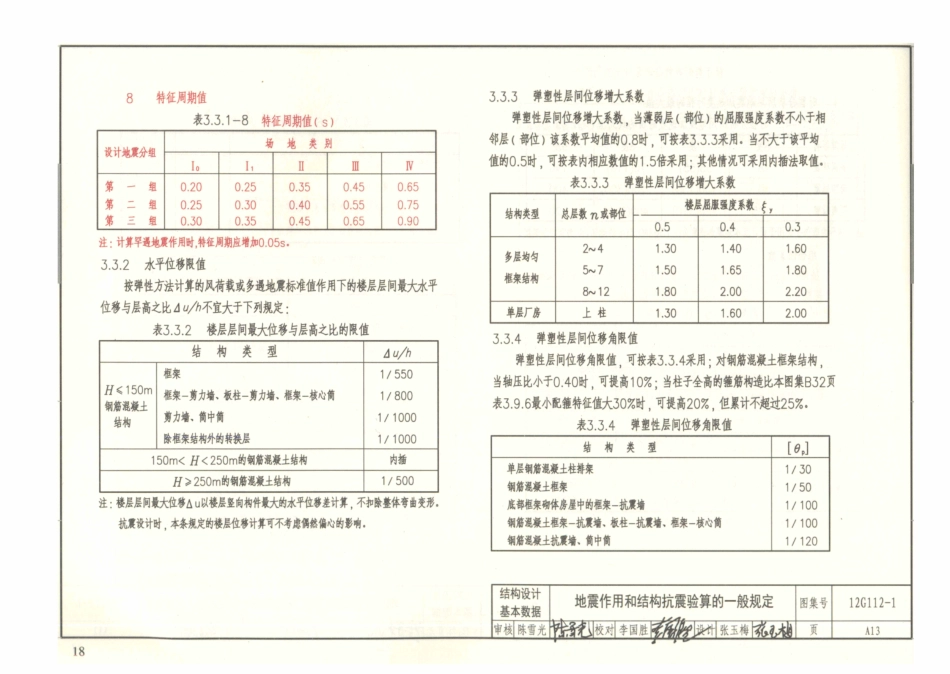 8 特征周期值
表3.3.1-8 特征周期值(s)
设计地震分组 场地类别
I₀ I₁ Ⅱ Ⅲ Ⅳ
第一组 0.20 0.25 0.35 0.45 0.65
第二组 0.25 0.30 0.40 0.55 0.75
第三组 0.30 0.35 0.45 0.65 0.90
注：计算罕遇地震作用时，特征周期应增加0.05s。
3.3.2 水平位移限值
按弹性方法计算的风荷载或多遇地震标准值作用下的楼层层间最大水平
位移与层高之比Δu/h不宜大于下列规定：
表3.3.2 楼层层间最大位移与层高之比的限值
结构类型 Δu/h
H≤150m
钢筋混凝土
结构
框架 1/550
框架-剪力墙、板柱-剪力墙、框架-核心筒 1/800
剪力墙、筒中筒 1/1000
除框架结构外的转换层 1/1000
150m<H<250m的钢筋混凝土结构 内插
H≥250m的钢筋混凝土结构 1/500
注：楼层层间最大位移Δu以楼层竖向构件最大的水平位移差计算，不扣除整体弯曲变形。
抗震设计时，本条规定的楼层位移计算可不考虑偶然偏心的影响。
3.3.3 弹塑性层间位移增大系数
弹塑性层间位移增大系数，当薄弱层（部位）的屈服强度系数不小于相
邻层（部位）该系数平均值的0.8时，可按表3.3.3采用。当不大于该平均
值的0.5时，可按表内相应数值的1.5倍采用；其他情况可采用内插法取值。
表3.3.3 弹塑性层间位移增大系数
结构类型 总层数n或部位 楼层屈服强度系数ξy
0.5 0.4 0.3
多层均匀
框架结构
2~4 1.30 1.40 1.60
5~7 1.50 1.65 1.80
8~12 1.80 2.00 2.20
单层厂房 上柱 1.30 1.60 2.00
3.3.4 弹塑性层间位移角限值
弹塑性层间位移角限值，可按表3.3.4采用；对钢筋混凝土框架结构，
当轴压比小于0.40时，可提高10%；当柱子全高的箍筋构造比本图集B32页
表3.9.6最小配箍特征值大30%时，可提高20%，但累计不超过25%。
表3.3.4 弹塑性层间位移角限值
结构类型 [θp]
单层钢筋混凝土柱排架 1/30
钢筋混凝土框架 1/50
底部框架砌体房屋中的框架-抗震墙 1/100
钢筋混凝土框架-抗震墙、板柱-抗震墙、框架-核心筒 1/100
钢筋混凝土抗震墙、筒中筒 1/120
结构设计
基本数据
地震作用和结构抗震验算的一般规定 图集号 12G112-1
审核 陈雪光 校对 李国胜 设计 张玉梅 页 A13
18